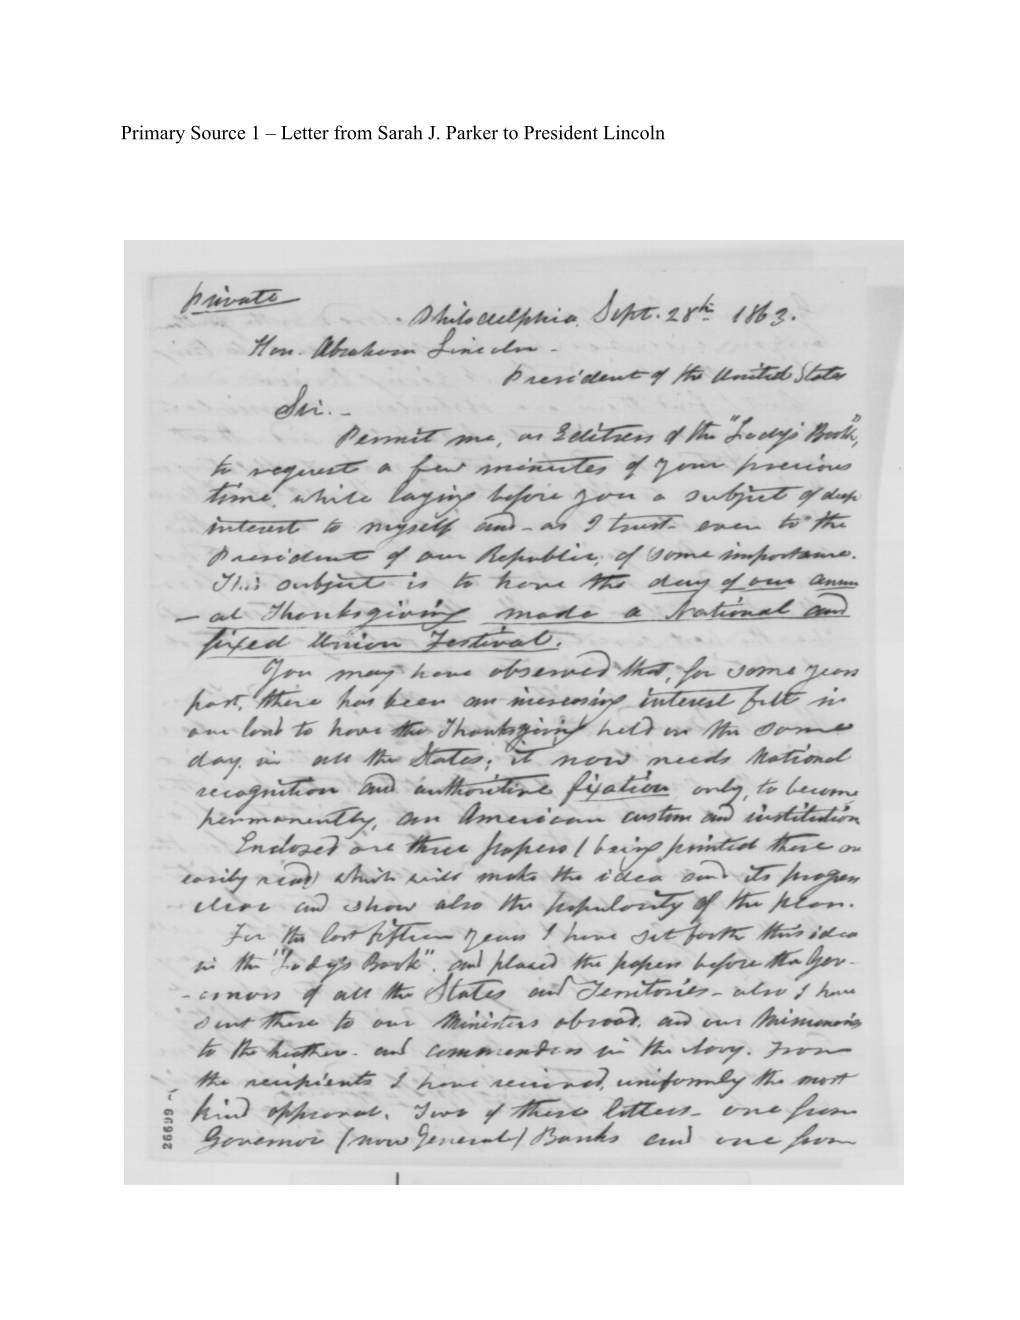 Primary Source 1 – Letter from Sarah J. Parker to President Lincoln
Private
Philadelphia, Sept. 28th 1863.
Hon. Abraham Lincoln -
President of the United States
Sir. -
Permit me, as Editress of the "Lady's Book",
to request a few minutes of your precious
time, while laying before you a subject of deep
interest to myself and - as I trust - even to the
President of our Republic, of some importance.
This subject is to have the day of our annu
- al Thanksgiving made a National and
fixed Union Festival.
You may have observed that, for some years
past, there has been an increasing interest felt in
our land to have the Thanksgiving held on the same
day, in all the States; it now needs National
recognition and authoritive fixation, only, to become
permanently, an American custom and institution
Enclosed are three papers (being printed these are
easily read) which will make the idea and its progress
clear and show also the popularity of the plan.
For the last fifteen years I have set forth this idea
in the "Lady's Book", and placed the papers before the Gov-
- ernors of all the States and Territories - also I have
sent these to our Ministers abroad, and our Missionaries
to the heathen - and commanders in the Navy. From
the recipients I have received, uniformly the most
kind approval. Two of these letters - one from
Governor (now General) Banks and one from
26699